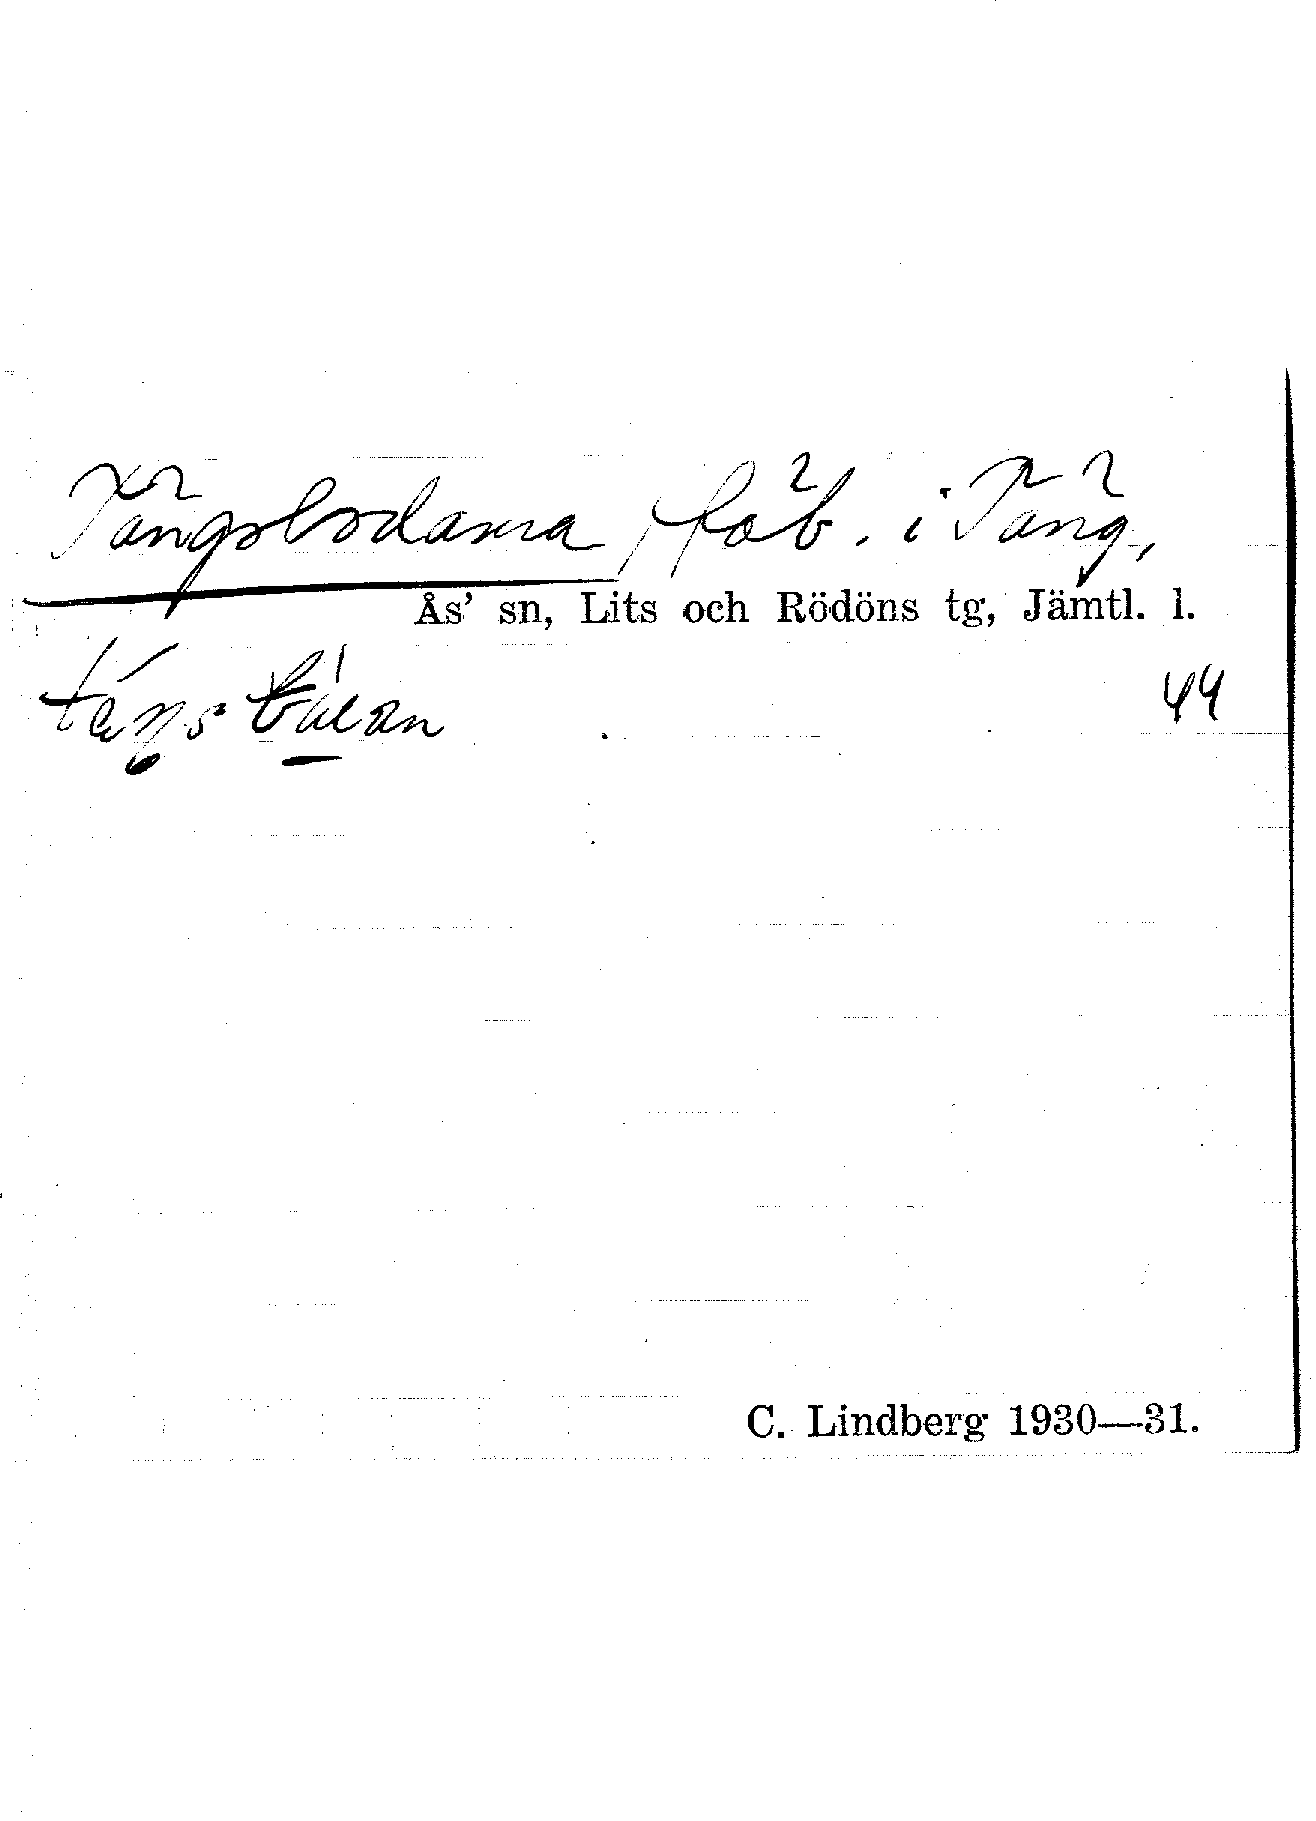 Tångsbodarna, fäb. i Tång,
Ås' sn, Lits och Rödöns tg, Jämtl. l.
44
C. Lindberg 1930—31.